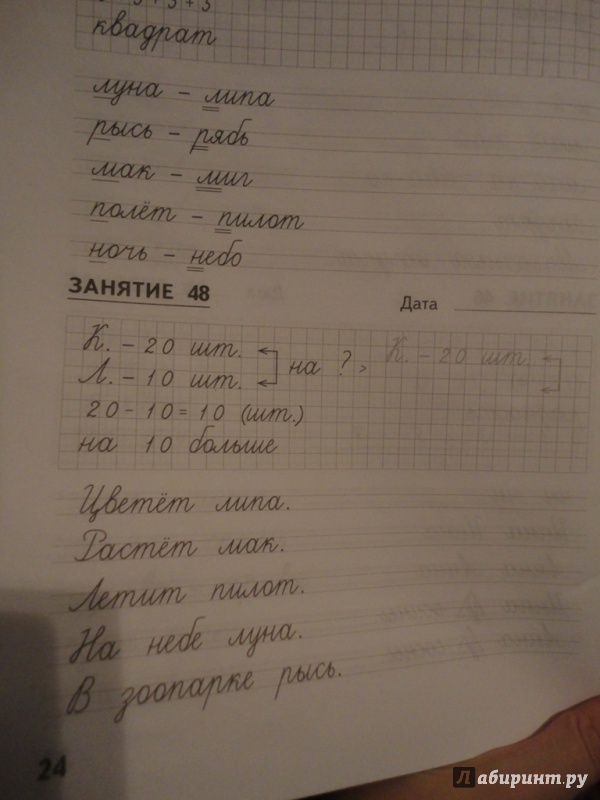 квадрат
луна – липа
рысь – рябь
мак – миг
полёт – пилот
ночь – небо
ЗАНЯТИЕ 48
Дата
К. – 20 шт. на ? > К. – 20 шт.
Л. – 10 шт.
20 – 10 = 10 (шт.)
на 10 больше
Цветёт липа.
Растёт мак.
Летит пилот.
На небе луна.
В зоопарке рысь.
24
Лабиринт.ру